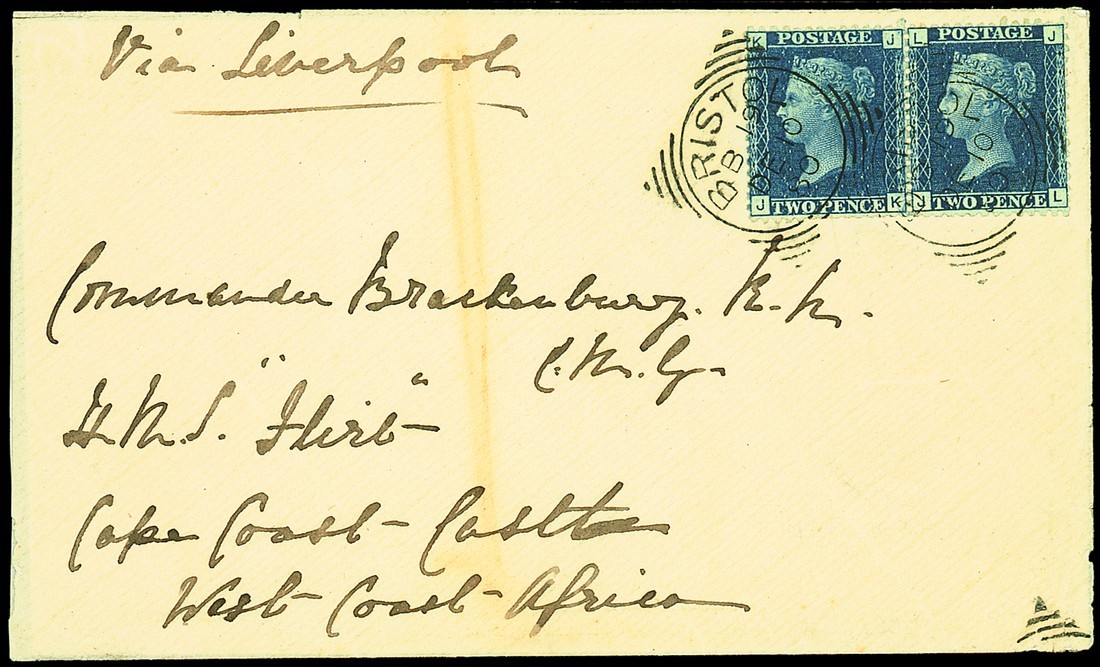 Via Liverpool
K POSTAGE J
L POSTAGE J
J TWO PENCE K
J TWO PENCE L
BRISTOL
B
DE 10
80
Commander Brackenbury. R.N.
C.M.G.
H.M.S. "Flirt"
Cape Coast Castle
West Coast Africa